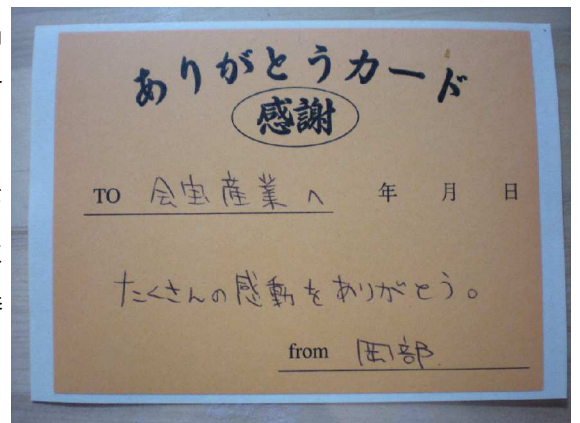 ありがとうカード
感謝
TO 会宝産業へ 年 月 日
たくさんの感動をありがとう。
from 岡部